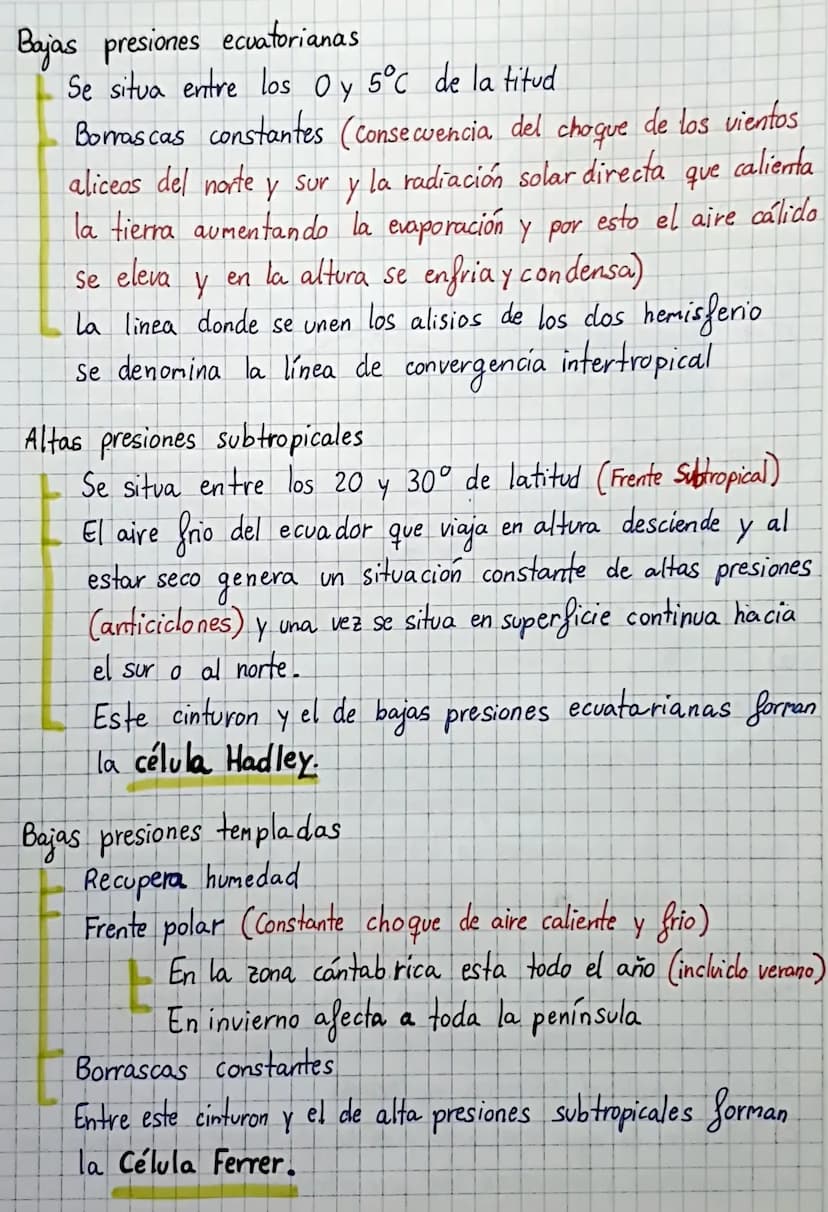 Bajas presiones ecuatorianas
Se situa entre los 0 y 5ºC de la titud
Borrascas constantes (Consecuencia del choque de los vientos
aliceos del norte y sur y la radiación solar directa que calienta
la tierra aumentando la evaporación y por esto el aire cálido
se eleva y en la altura se enfria y condensa)
La linea donde se unen los alisios de los dos hemisferio
se denomina la línea de convergencia intertropical
Altas presiones subtropicales
Se situa entre los 20 y 30º de latitud (Frente Subtropical)
El aire frio del ecuador que viaja en altura desciende y al
estar seco genera un situación constante de altas presiones
(anticiclones) y una vez se situa en superficie continua hacia
el sur o al norte.
Este cinturon y el de bajas presiones ecuatarianas forman
la célula Hadley.
Bajas presiones templadas
Recupera humedad
Frente polar (Constante choque de aire caliente y frio)
En la zona cántabrica esta todo el año (incluido verano)
En invierno afecta a toda la península
Borrascas constantes
Entre este cinturon y el de alta presiones subtropicales forman
la Célula Ferrer.